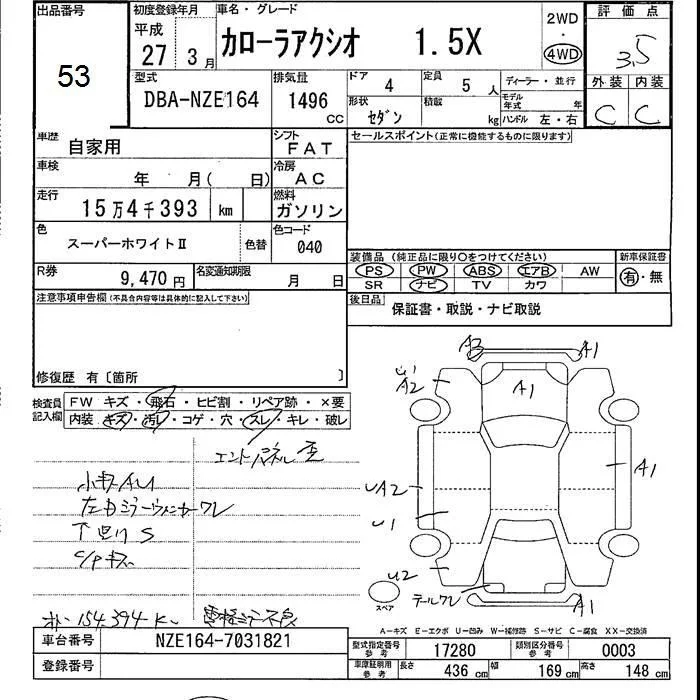 出品番号
53
初度登録年月
平成
27 3月
車名・グレード
カローラアクシオ 1.5X
2WD
・
4WD
評価点
3.5
外装 内装
C C
型式
DBA-NZE164
排気量
1496 CC
ドア 4
定員 5 人
形状 セダン
積載 kg
ディーラー・並行
モデル年式 年
ハンドル 左・右
車歴
自家用
シフト
FAT
セールスポイント(正常に機能するものに限ります)
車検
年 月( 日)
冷房
AC
走行
15万4千393 km
燃料
ガソリン
色
スーパーホワイトⅡ
色替
色コード
040
装備品 (純正品に限り○をつけてください)
新車保証書
PS PW ABS エアB AW
SR ナビ TV カワ
有・無
R券 9,470円
名変通知期限 月 日
後日品 保証書・取説・ナビ取説
注意事項申告欄(不具合内容等は具体的に記入して下さい)
修復歴 有〔箇所 〕
検査員記入欄
FW キズ・飛石・ヒビ割・リペア跡・×要
内装 キズ・汚レ・コゲ・穴・スレ・キレ・破レ
エンドパネル歪
小キズAU
左ドミラーウィンカーワレ
下回りS
C/Pキズ
154394K
A3 A1
U1
A2
A1
UA2
A1
U1
U2
テールワレ
A1
スペア
A-キズ E-エクボ U-凹み W-補修跡 S-サビ C-腐食 XX-交換済
車台番号 NZE164-7031821
登録番号
型式指定番号 参考 17280
類別区分番号 参考 0003
車庫証明用 参考
長さ 436 cm
幅 169 cm
高さ 148 cm